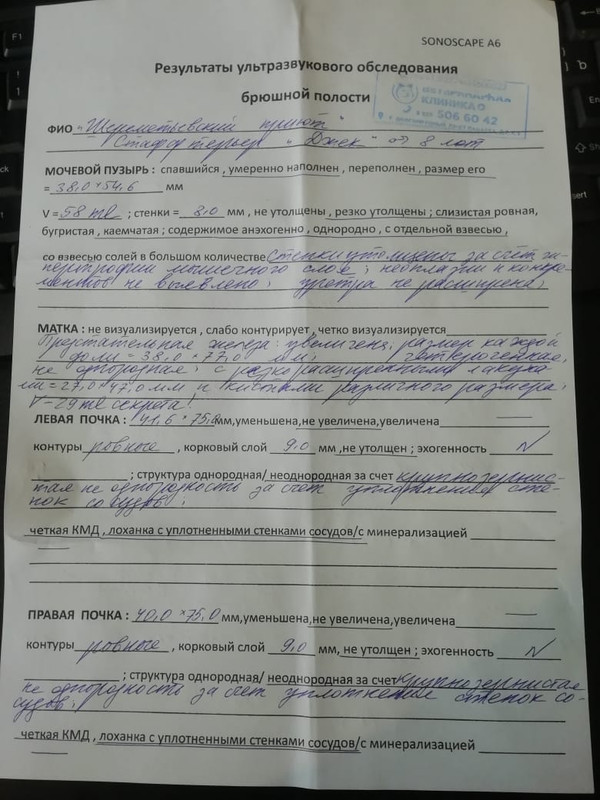 SONOSCAPE A6
Результаты ультразвукового обследования
брюшной полости
КЛИНИКА
506 60 42
ФИО "Шереметьевский приют"
Стаффтерьер "Джек" 8 лет
МОЧЕВОЙ ПУЗЫРЬ : спавшийся , умеренно наполнен , переполнен , размер его
= 38,0 × 54,6 мм
V = 58 ml ; стенки = 8,0 мм , не утолщены , резко утолщены ; слизистая ровная,
бугристая , каемчатая ; содержимое анэхогенно , однородно , с отдельной взвесью ,
со взвесью солей в большом количестве стенки утолщены за счёт ги-
пертрофии мышечного слоя ; неоплазии и конкре-
ментов не выявлено ; уретра не расширена ;
МАТКА : не визуализируется , слабо контурирует , четко визуализируется
Предстательная железа : увеличена, размер каждой
доли = 38,0 × 77,0 мм, гетерогенная,
не однородная ; с резко расширенными лакуна-
ми = 27,0 × 47,0 мм и кистами различного размера ;
V - 29 ml секрета!
ЛЕВАЯ ПОЧКА : 41,6 × 75,0 мм,уменьшена,не увеличена,увеличена
контуры ровные , корковый слой 9,0 мм ,не утолщен ; эхогенность N
; структура однородная/ неоднородная за счет крупнозернис-
тая не однородность за счёт уплотнения сте-
нок сосудов ;
четкая КМД , лоханка с уплотненными стенками сосудов/с минерализацией
ПРАВАЯ ПОЧКА : 40,0 × 75,0 мм,уменьшена,не увеличена,увеличена
контуры ровные , корковый слой 9,0 мм, не утолщен ; эхогенность N
; структура однородная/ неоднородная за счет крупнозернистая
не однородность за счёт уплотнения стенок со-
судов ;
четкая КМД , лоханка с уплотненными стенками сосудов/с минерализацией